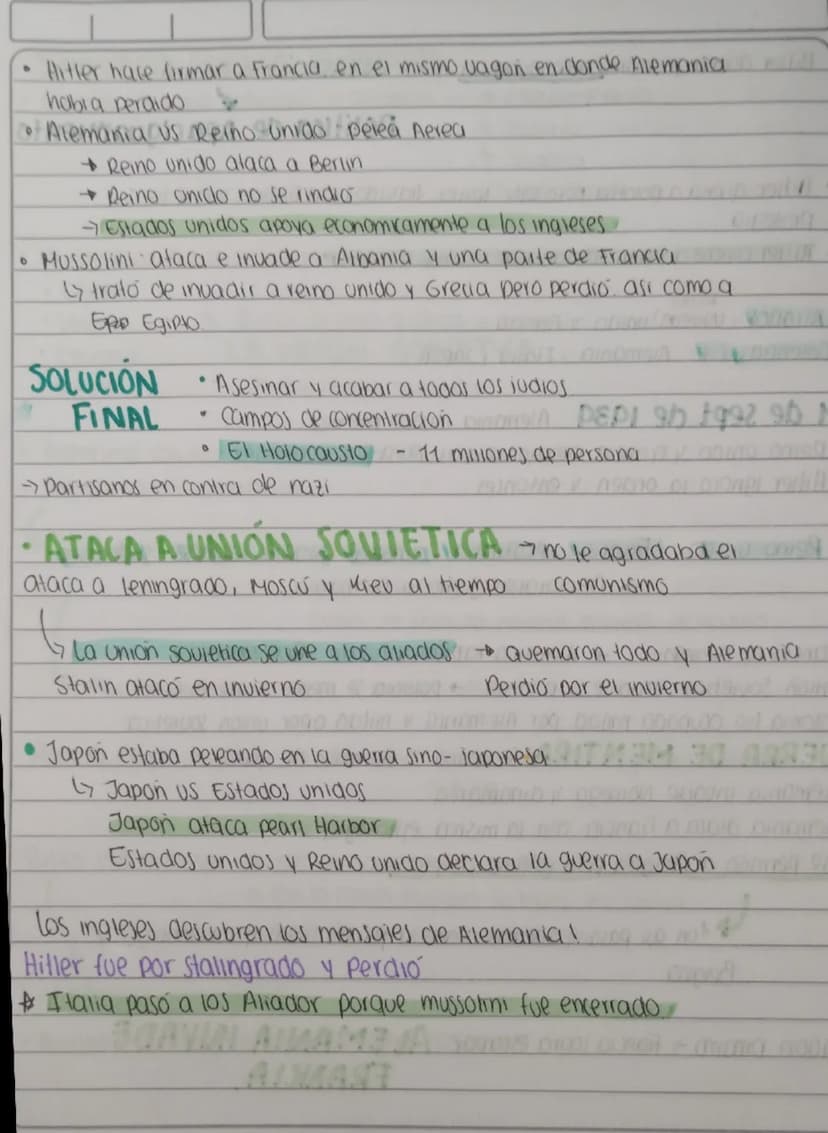 • Hitler hace firmar a Francia en el mismo vagón en donde Alemania
había perdido
• Alemania vs Reino Unido pelea Aerea
→ Reino unido ataca a Berlin
→ Reino unido no se rindió
→ Estados unidos apoya economicamente a los ingleses
• Mussolini ataca e invade a Albania y una parte de Francia
↳ trató de invadir a reino unido y Grecia pero perdió así como a
Egipto
SOLUCIÓN • Asesinar y acabar a todos los judios
FINAL • campos de concentración
• El Holocausto - 11 millones de persona
→ partisanos en contra de nazi
• ATACA A UNIÓN SOVIETICA → no le agradaba el
ataca a Leningrado, Moscú y Kiev al tiempo comunismo
↳ La unión sovietica se une a los aliados → quemaron todo y Alemania
Stalin atacó en invierno Perdió por el invierno
• Japón estaba peleando en la guerra sino-japonesa
↳ Japón vs Estados unidos
Japón ataca pearl Harbor
Estados unidos y Reino unido declara la guerra a Japón
Los ingleses descubren los mensajes de Alemania!
Hitler fue por Stalingrado y perdió
☆ Italia pasó a los Aliador porque mussolini fue encerrado